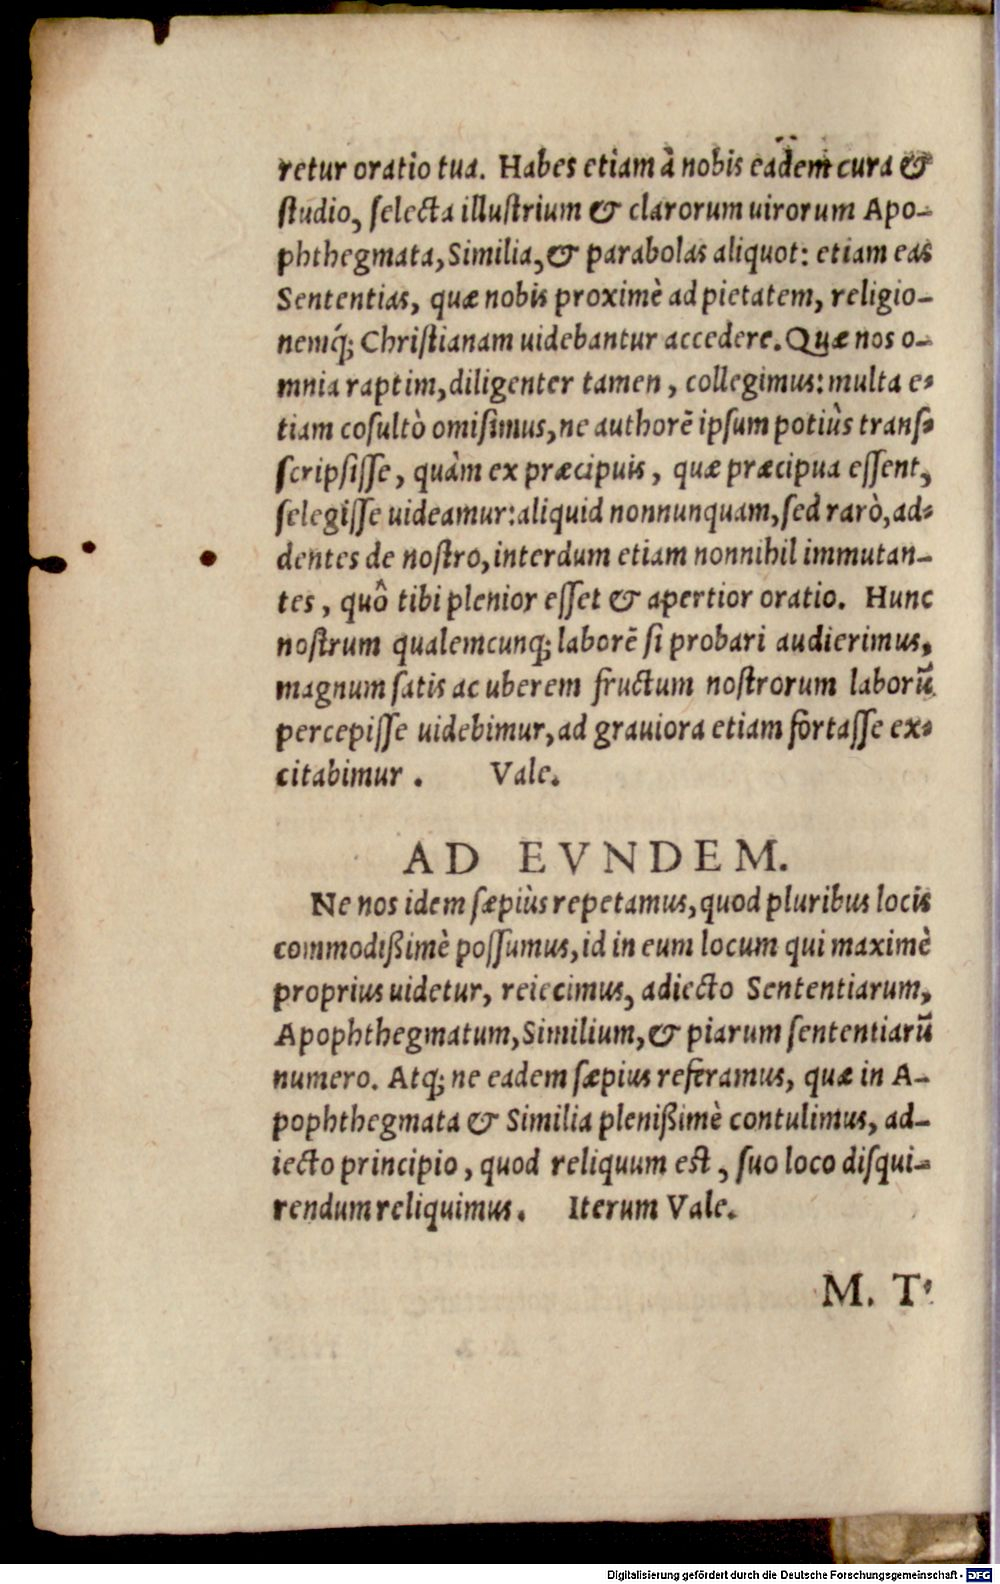 retur oratio tua. Habes etiam à nobis eadem cura &
studio, selecta illustrium & clarorum uirorum Apo-
phthegmata, Similia, & parabolas aliquot: etiam eas
Sententias, quæ nobis proximè ad pietatem, religio-
nemq́; Christianam uidebantur accedere. Quæ nos o-
mnia raptim, diligenter tamen, collegimus: multa e-
tiam cōsultò omisimus, ne authorē ipsum potiùs trans-
scripsisse, quàm ex præcipuis, quæ præcipua essent,
selegisse uideamur: aliquid nonnunquam, sed rarò, ad-
dentes de nostro, interdum etiam nonnihil immutan-
tes, quô tibi plenior esset & apertior oratio. Hunc
nostrum qualemcunq; laborē si probari audierimus,
magnum satis ac uberem fructum nostrorum laborū
percepisse uidebimur, ad grauiora etiam fortasse ex-
citabimur. Vale.
AD EVNDEM.
Ne nos idem sæpiùs repetamus, quod pluribus locis
commodißimè possumus, id in eum locum qui maximè
proprius uidetur, reiecimus, adiecto Sententiarum,
Apophthegmatum, Similium, & piarum sententiarū
numero. Atq; ne eadem sæpius referamus, quæ in A-
pophthegmata & Similia plenißimè contulimus, ad-
iecto principio, quod reliquum est, suo loco disqui-
rendum reliquimus. Iterum Vale.
M. T.
Digitalisierung gefördert durch die Deutsche Forschungsgemeinschaft - DFG